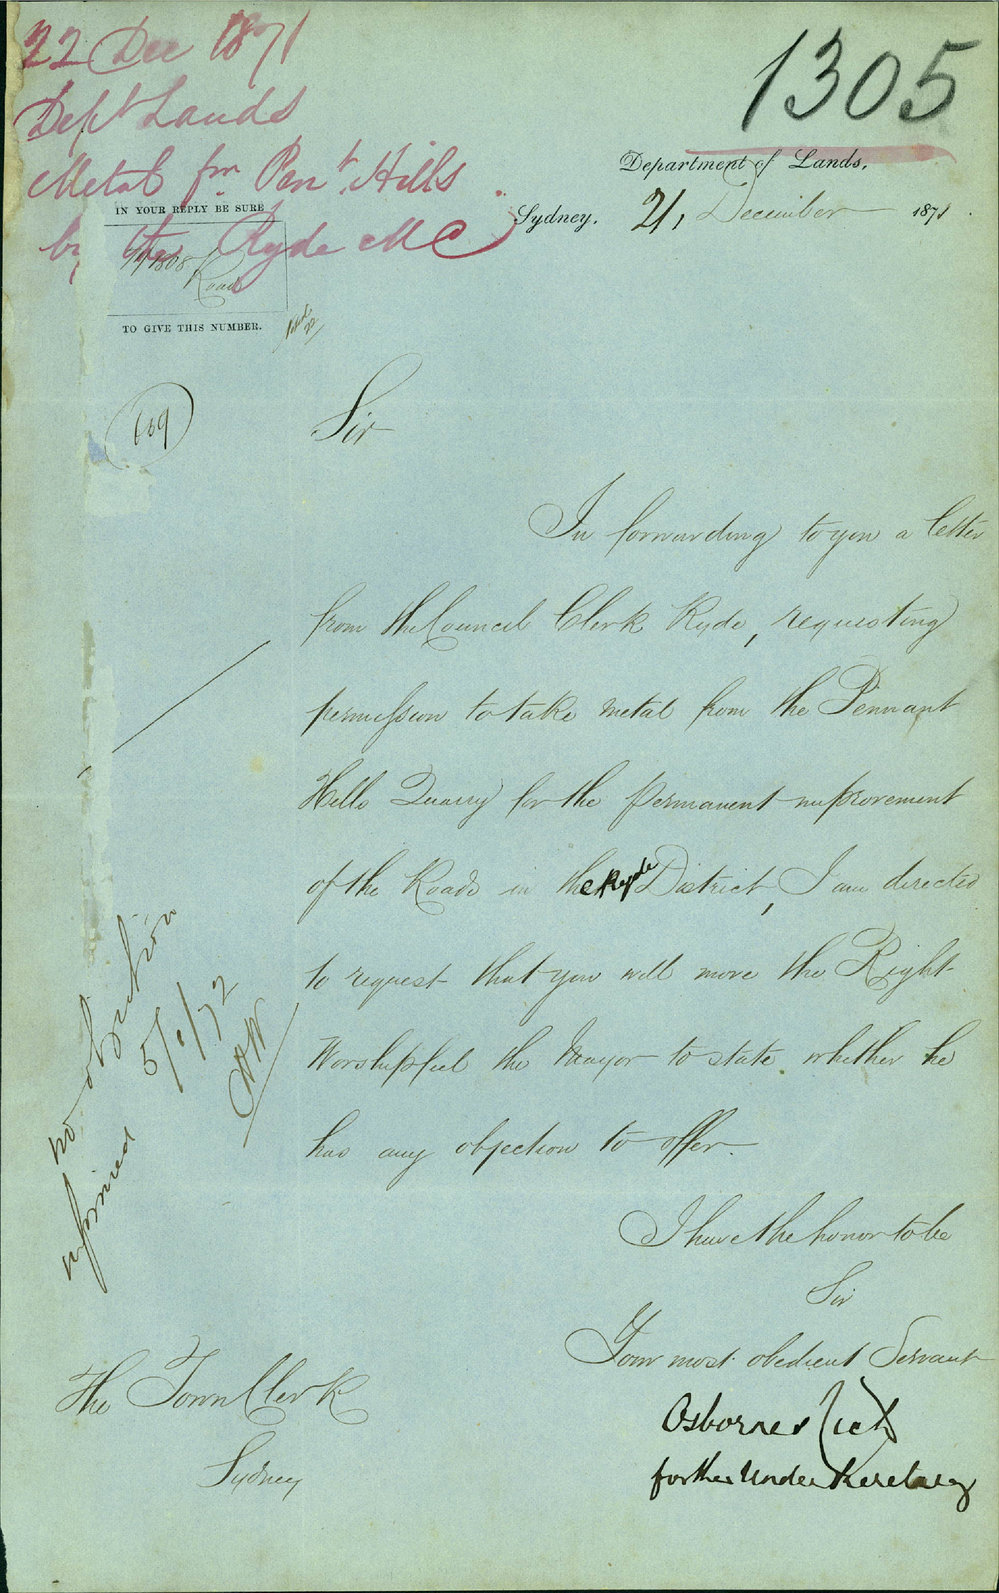 22 Dec 1871
Dept Lands
Metal fm Pent. Hills
by the Ryde MC
1305
Department of Lands,
Sydney, 21, December 1871.
IN YOUR REPLY BE SURE
Roads
TO GIVE THIS NUMBER.
Sir
In forwarding to you a letter
from the Council Clerk Ryde, requesting
permission to take metal from the Pennant
Hills Quarry for the permanent improvement
of the Roads in the Ryde District, I am directed
to request that you will move the Right
Worshipful the Mayor to state whether he
has any objection to offer.
I have the honor to be
Sir
Your most obedient Servant
Osborne Rich
for the Under Secretary
The Town Clerk
Sydney
no objection
informed 5/1/72